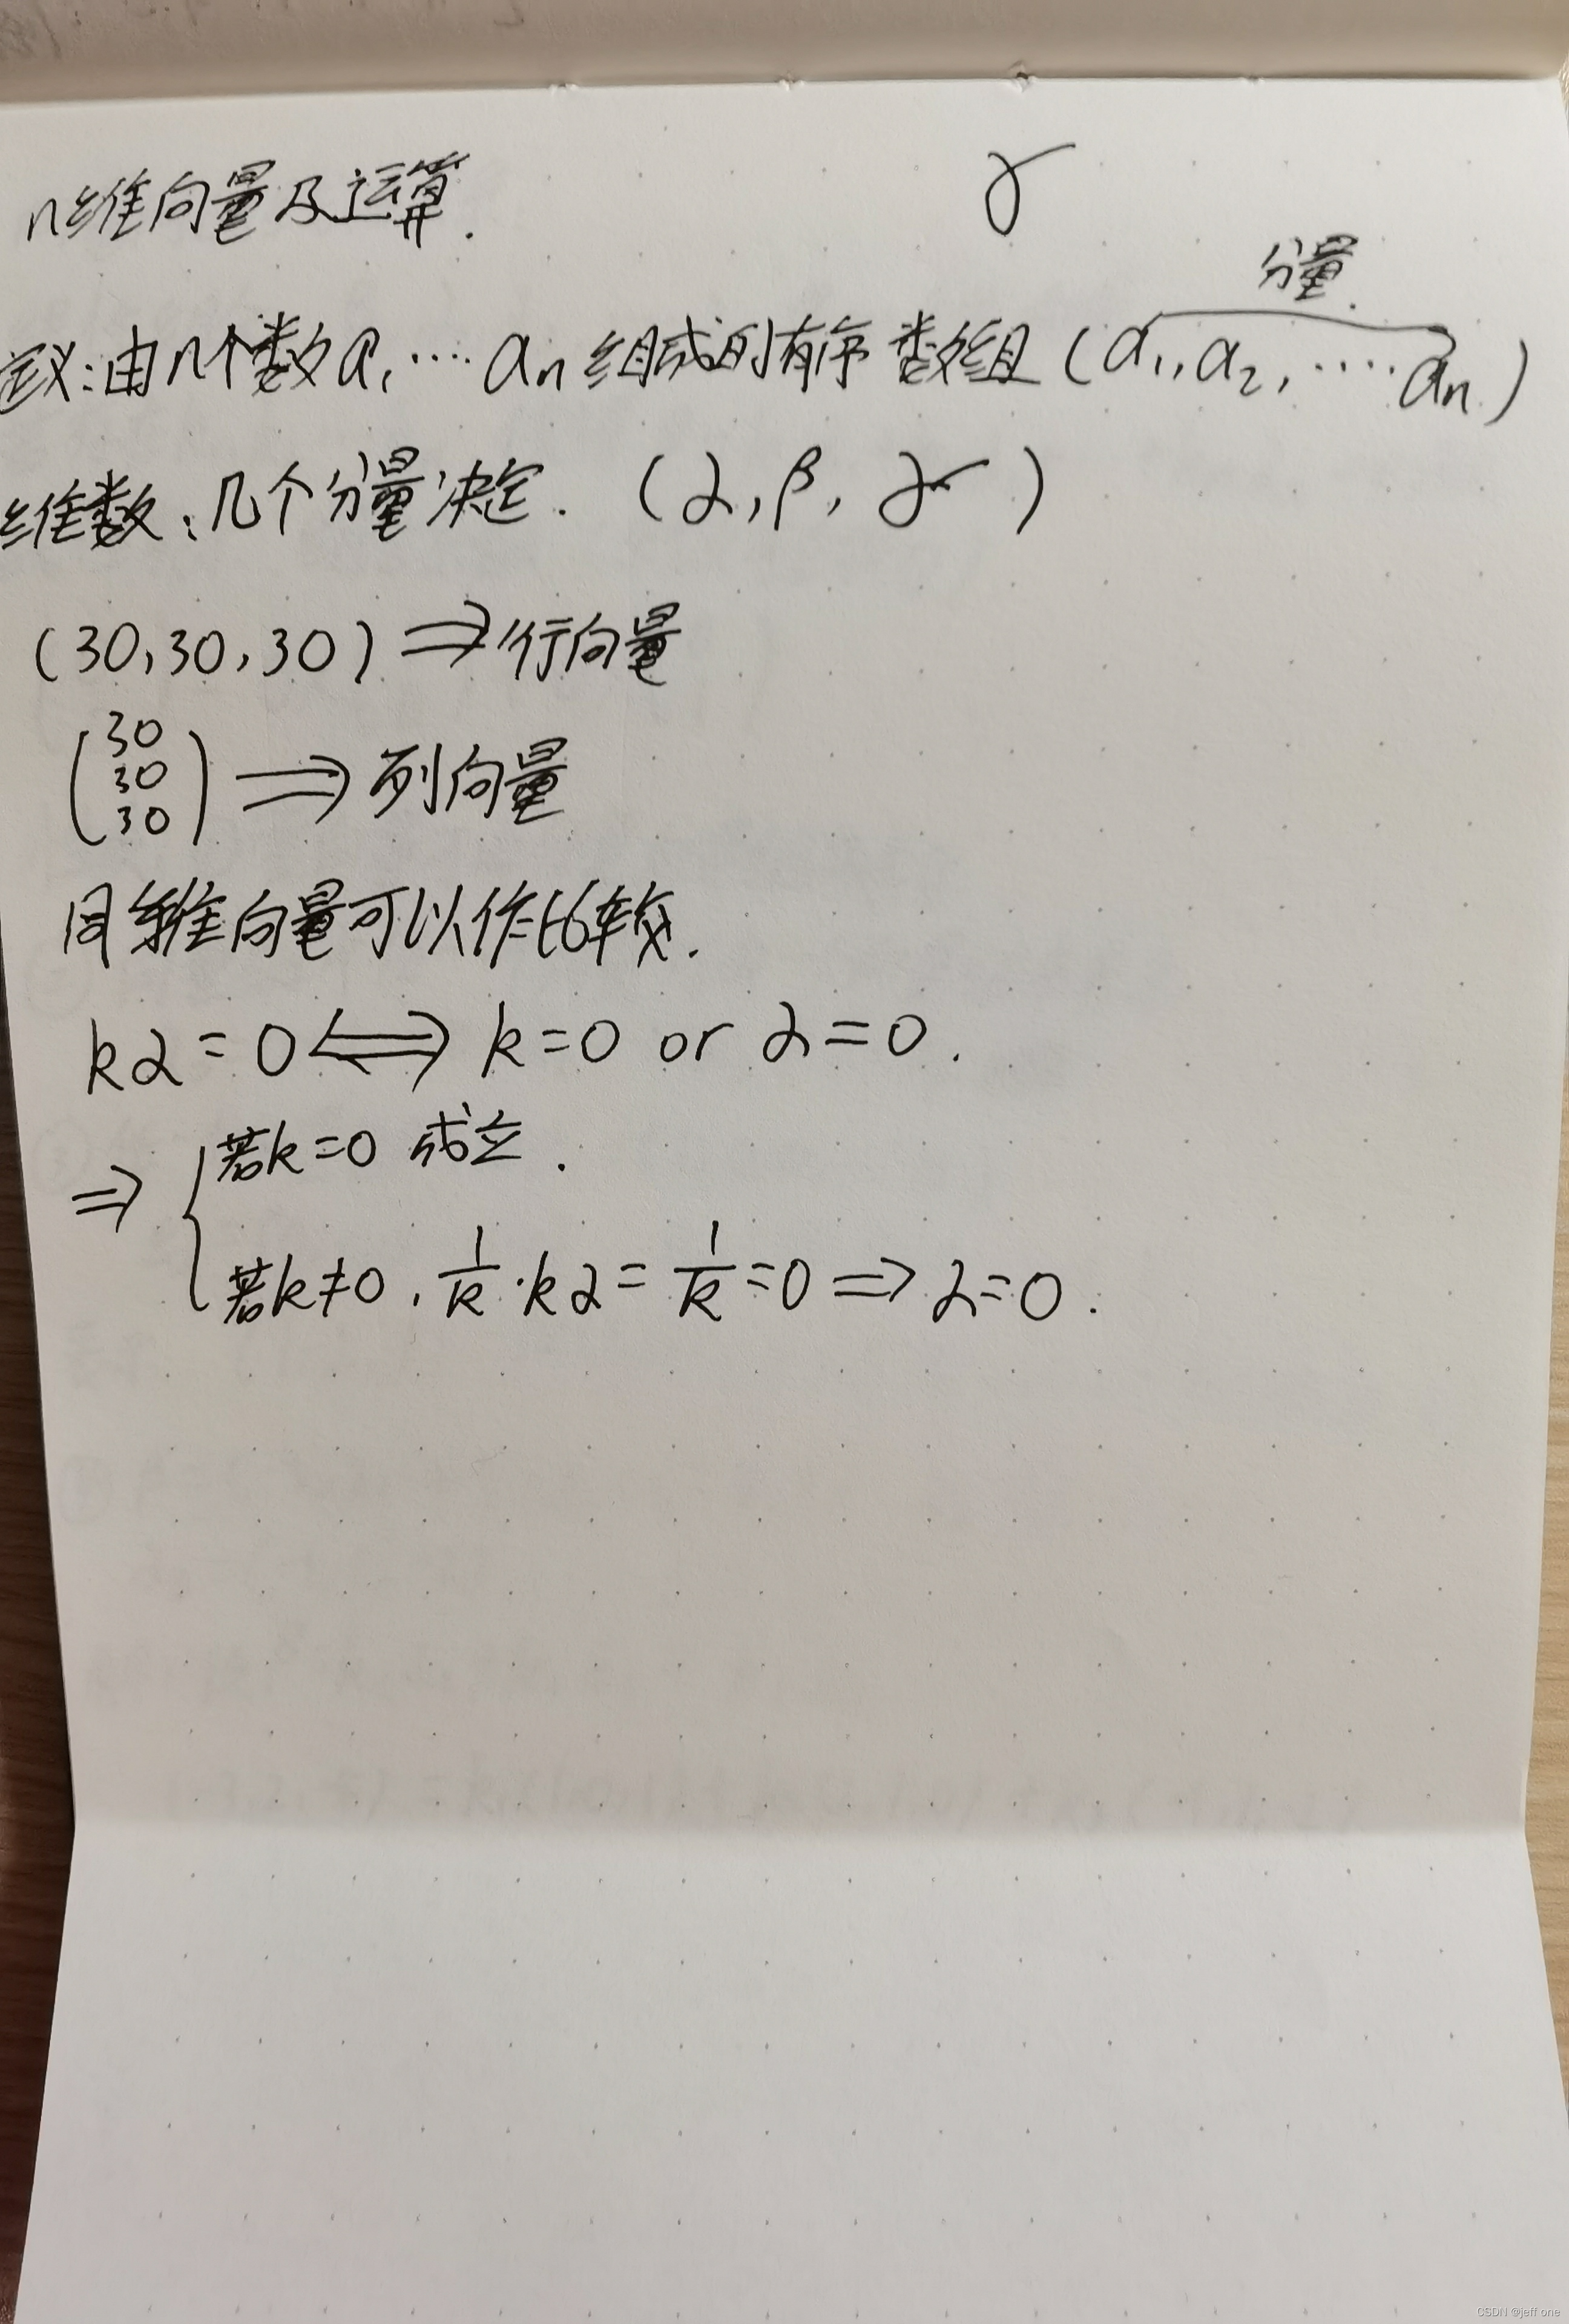 n维向量及运算.
γ
分量.
定义:由n个数a₁, ···· aₙ组成的有序数组(a₁, a₂, ···· aₙ)
维数:几个分量决定. (α, β, γ)
(30,30,30) ⇒ 行向量
(30
30
30) ⇒ 列向量
同维向量可以作比较.
kα = 0 ⇔ k=0 or α=0.
⇒ { 若k=0 成立.
若k≠0, 1/k · kα = 1/k = 0 ⇒ α=0.
CSDN @jeff one